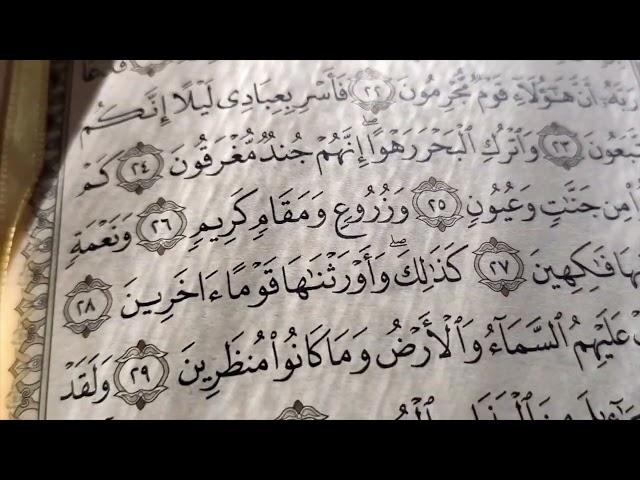 أَنَّ هَٰٓؤُلَآءِ قَوْمٌ مُّجْرِمُونَ ٢٢ فَأَسْرِ بِعِبَادِى لَيْلًا إِنَّكُم
وَٱتْرُكِ ٱلْبَحْرَ رَهْوًا ۖ إِنَّهُمْ جُندٌ مُّغْرَقُونَ ٢٤ كَمْ
مِن جَنَّٰتٍ وَعُيُونٍ ٢٥ وَزُرُوعٍ وَمَقَامٍ كَرِيمٍ ٢٦ وَنَعْمَةٍ
فَٰكِهِينَ ٢٧ كَذَٰلِكَ ۖ وَأَوْرَثْنَٰهَا قَوْمًا ءَاخَرِينَ ٢٨
عَلَيْهِمُ ٱلسَّمَآءُ وَٱلْأَرْضُ وَمَا كَانُوا۟ مُنظَرِينَ ٢٩ وَلَقَدْ